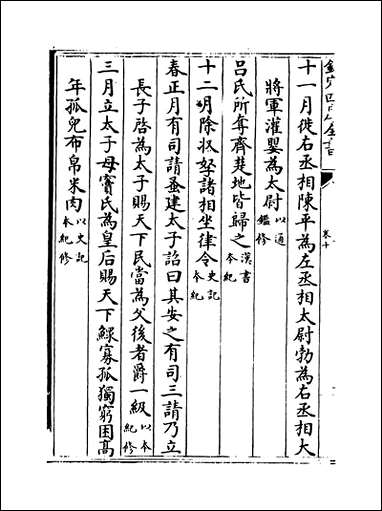 十一月徙右丞相陳平為左丞相太尉勃為右丞相大
將軍灌嬰為太尉以通鑑修
呂氏所奪齊楚地皆歸之漢書本紀
十二月除收孥諸相坐律令史記本紀
春正月有司請蚤建太子詔曰其安之有司三請乃立
長子啓為太子賜天下民當為父後者爵一級以本紀修
三月立太子母竇氏為皇后賜天下鰥寡孤獨窮困髙
年孤兒布帛米肉以史記本紀修
卷十